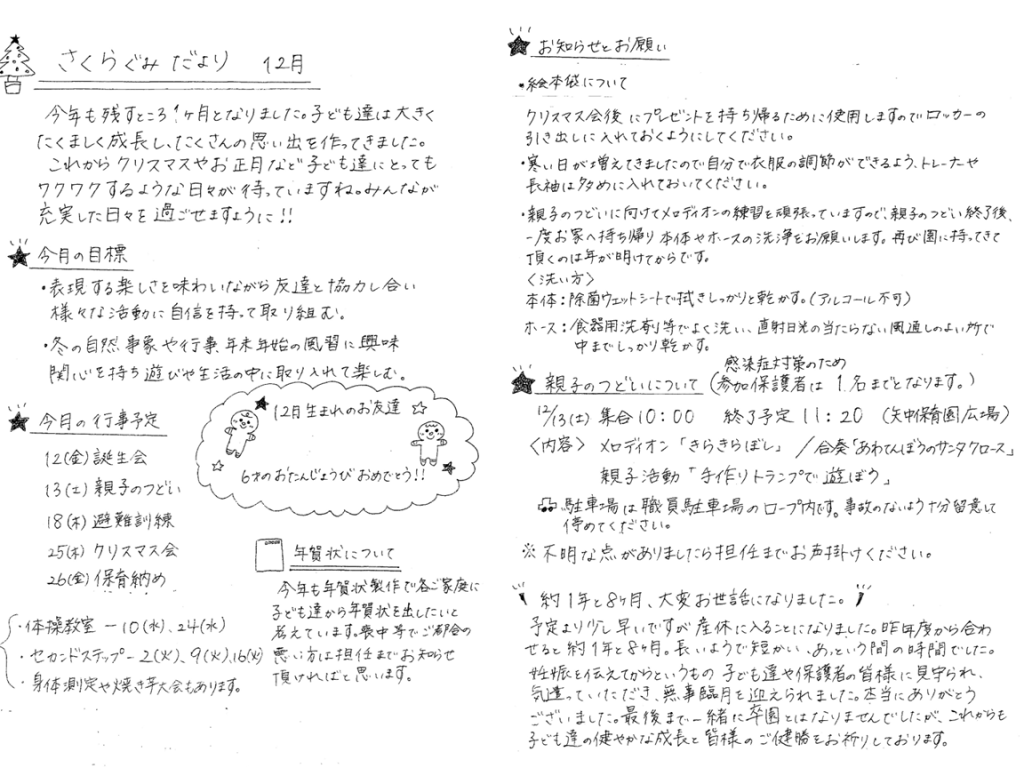 さくらぐみだより 12月
今年も残すところ1ヶ月となりました。子ども達は大きく
たくましく成長し、たくさんの思い出を作ってきました。
これからクリスマスやお正月など子ども達にとっても
ワクワクするような日々が待っていますね。みんなが
充実した日々を過ごせますように!!
今月の目標
・表現する楽しさを味わいながら友達と協力し合い
様々な活動に自信を持って取り組む。
・冬の自然事象や行事、年末年始の風習に興味
関心を持ち遊びや生活の中に取り入れて楽しむ。
今月の行事予定
12(金)誕生会
13(土)親子のつどい
18(木)避難訓練
25(木)クリスマス会
26(金)保育納め
・体操教室-10(水)、24(水)
・セカンドステップ-2(火)、9(火)、16(火)
・身体測定や焼き芋大会もあります。
12月生まれのお友達
6才のおたんじょうびおめでとう!!
年賀状について
今年も年賀状製作で各ご家庭に
子ども達から年賀状を出したいと
考えています。喪中等でご都合の
悪い方は担任までお知らせ
頂ければと思います。
お知らせとお願い
・絵本袋について
クリスマス会後にプレゼントを持ち帰るために使用しますのでロッカーの
引き出しに入れておくようにしてください。
・寒い日が増えてきましたので自分で衣服の調節ができるよう、トレーナーや
長袖は多めに入れておいてください。
・親子のつどいに向けてメロディオンの練習を頑張っていますので、親子のつどい終了後、
一度お家へ持ち帰り本体やホースの洗浄をお願いします。再び園に持ってきて
頂くのは年が明けてからです。
〈洗い方〉
本体:除菌ウェットシートで拭きしっかりと乾かす。(アルコール不可)
ホース:食器用洗剤等でよく洗い、直射日光の当たらない風通しのよい所で
中までしっかり乾かす。
感染症対策のため
親子のつどいについて(参加保護者は1名までとなります。)
12/13(土)集合10:00 終了予定11:20 (矢中保育園広場)
〈内容〉メロディオン「きらきらぼし」/合奏「あわてんぼうのサンタクロース」
親子活動「手作りトランプで遊ぼう」
駐車場は職員駐車場のロープ内です。事故のないよう十分留意して
停めてください。
※不明な点がありましたら担任までお声掛けください。
約1年と8ヶ月、大変お世話になりました。
予定より少し早いですが産休に入ることになりました。昨年度から合わ
せると約1年と8ヶ月。長いようで短かい、あっという間の時間でした。
妊娠を伝えてからというもの子ども達や保護者の皆様に見守られ、
気遣っていただき、無事臨月を迎えられました。本当にありがとう
ございました。最後まで一緒に卒園とはなりませんでしたが、これからも
子ども達の健やかな成長と皆様のご健勝をお祈りしております。